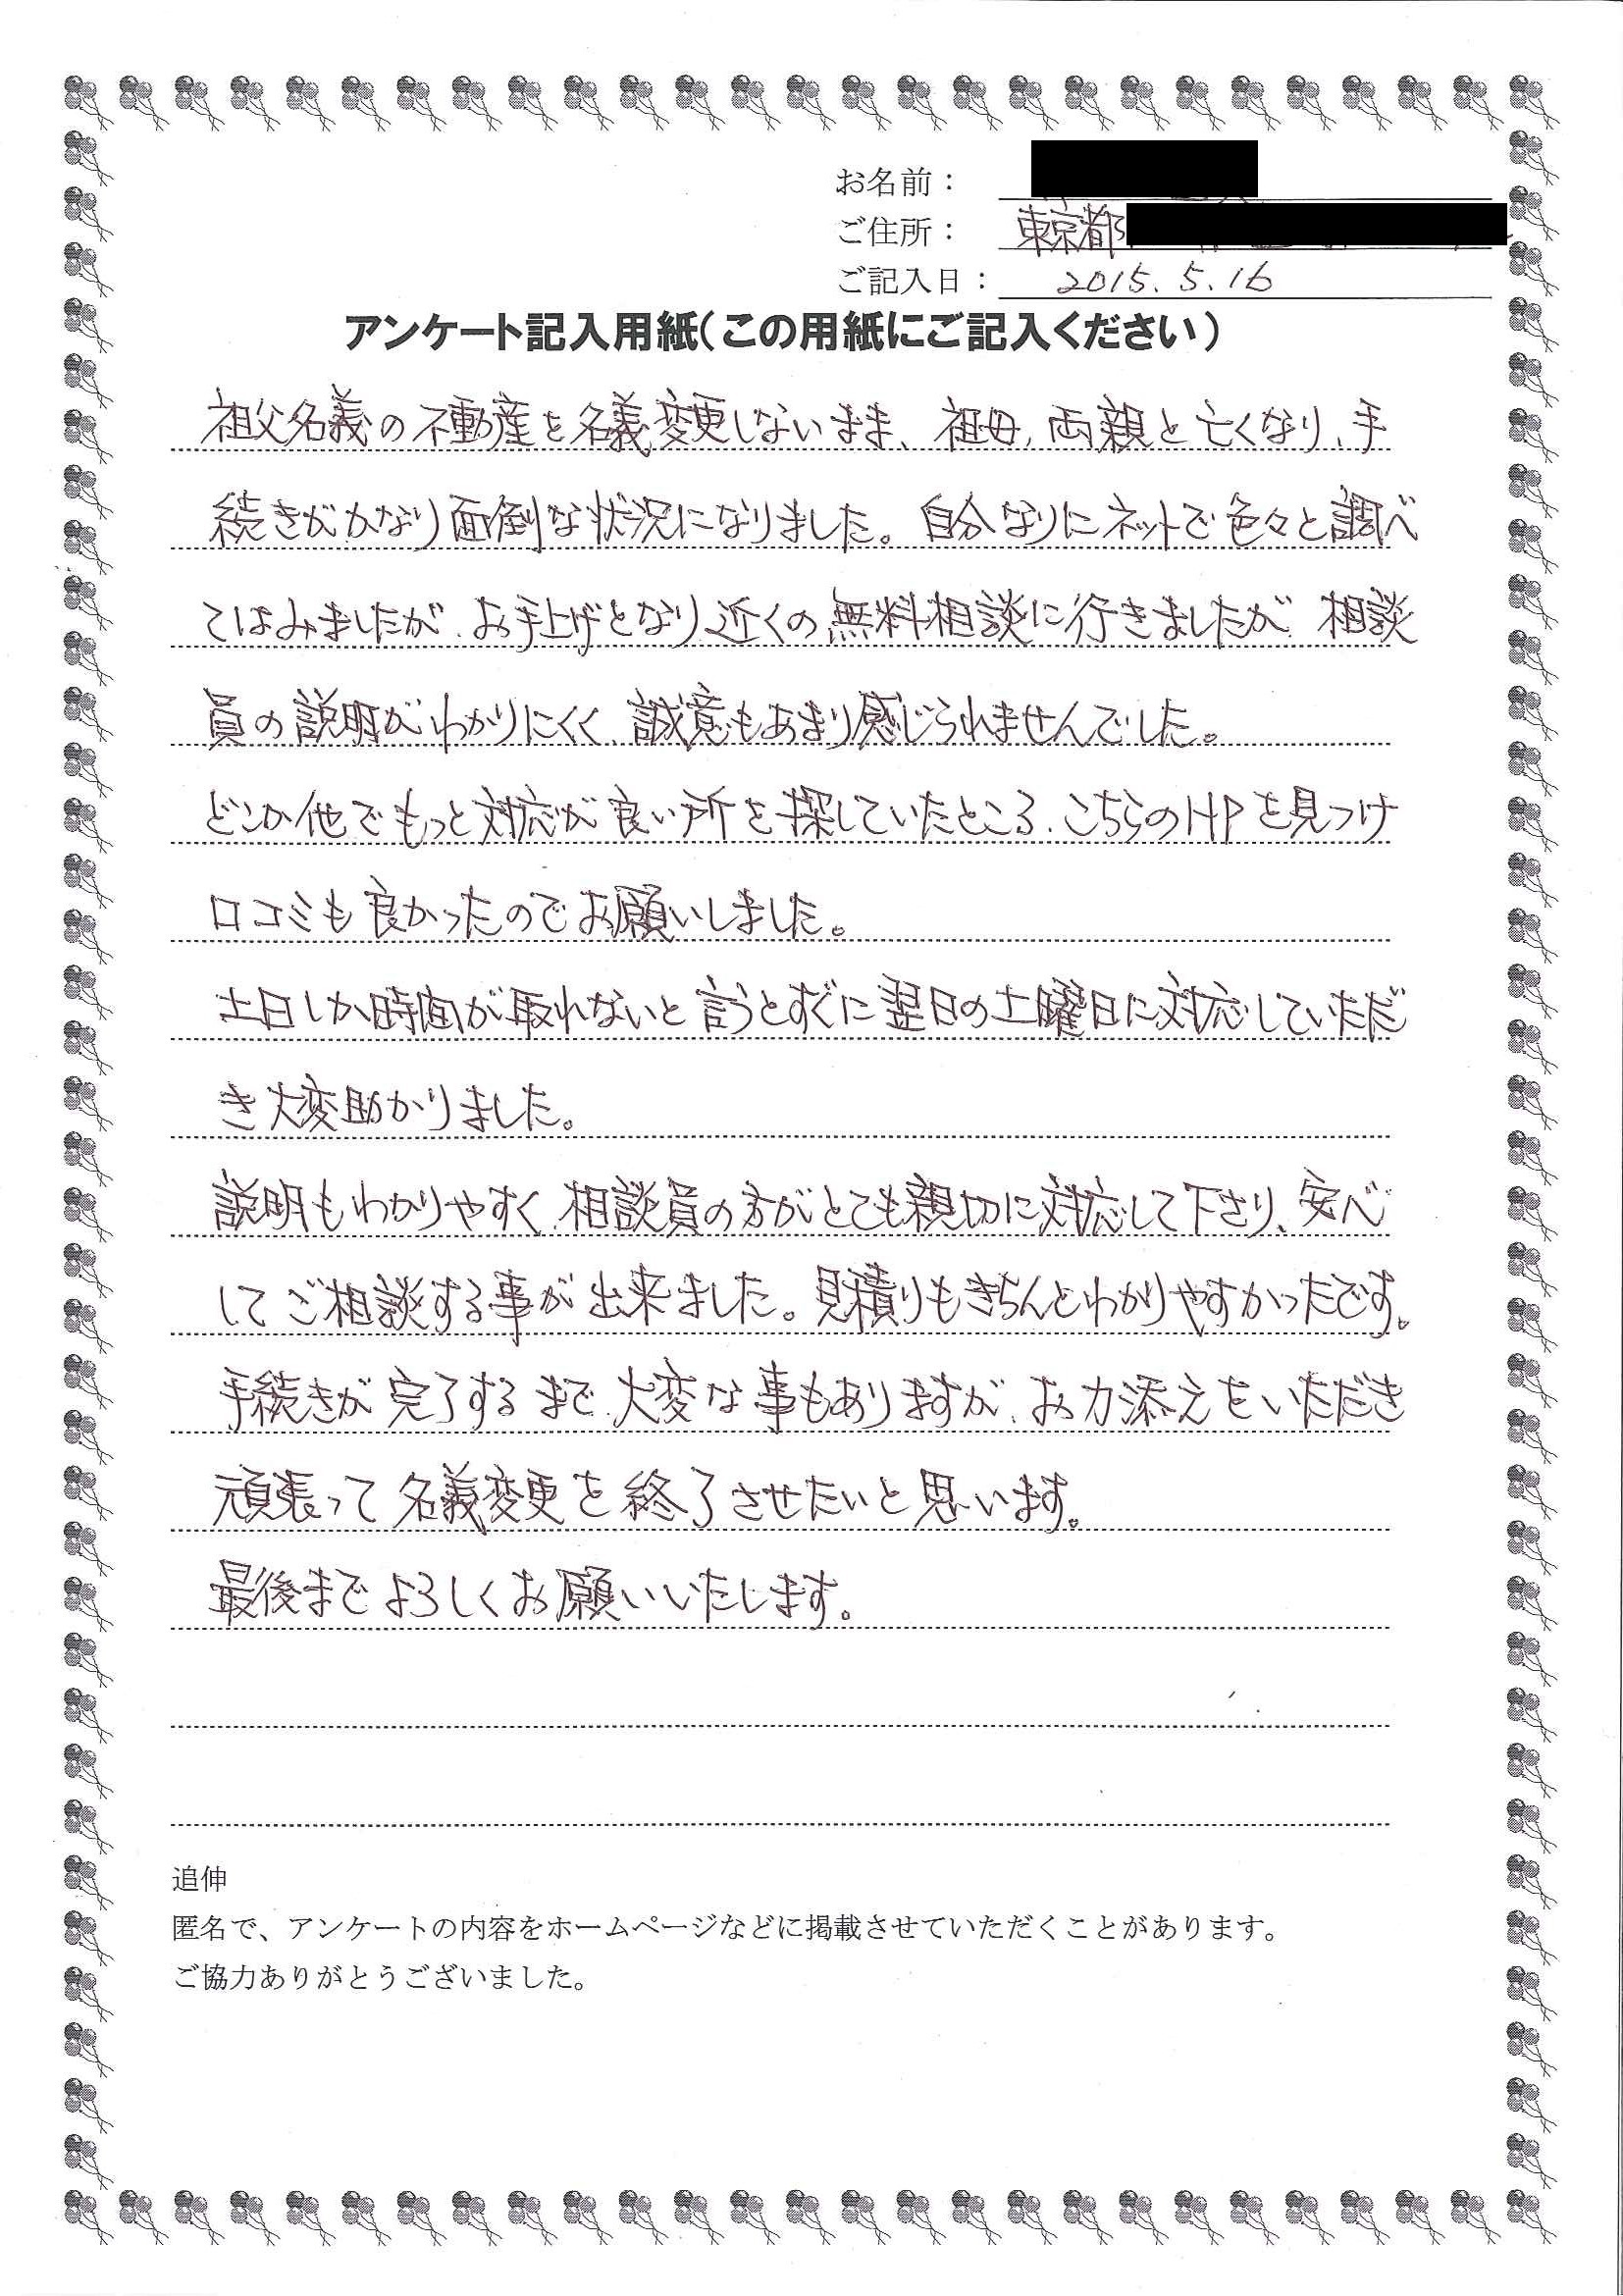 お名前：
ご住所： 東京都
ご記入日： 2015.5.16
アンケート記入用紙（この用紙にご記入ください）
祖父名義の不動産を名義変更しないまま、祖母、両親と亡くなり、手
続きがかなり面倒な状況になりました。自分なりにネットで色々と調べ
てはみましたが、お手上げとなり、近くの無料相談に行きましたが、相談
員の説明がわかりにくく、誠意もあまり感じられませんでした。
どこか他でもっと対応が良い所を探していたところ、こちらのHPを見つけ
口コミも良かったのでお願いしました。
土日しか時間が取れないと言うとすぐに翌日の土曜日に対応していただ
き大変助かりました。
説明もわかりやすく、相談員の方がとても親切に対応して下さり、安心
してご相談する事が出来ました。見積りもきちんとわかりやすかったです。
手続きが完了するまで、大変な事もありますが、お力添えをいただき
頑張って名義変更を終了させたいと思います。
最後までよろしくお願いいたします。
追伸
匿名で、アンケートの内容をホームページなどに掲載させていただくことがあります。
ご協力ありがとうございました。